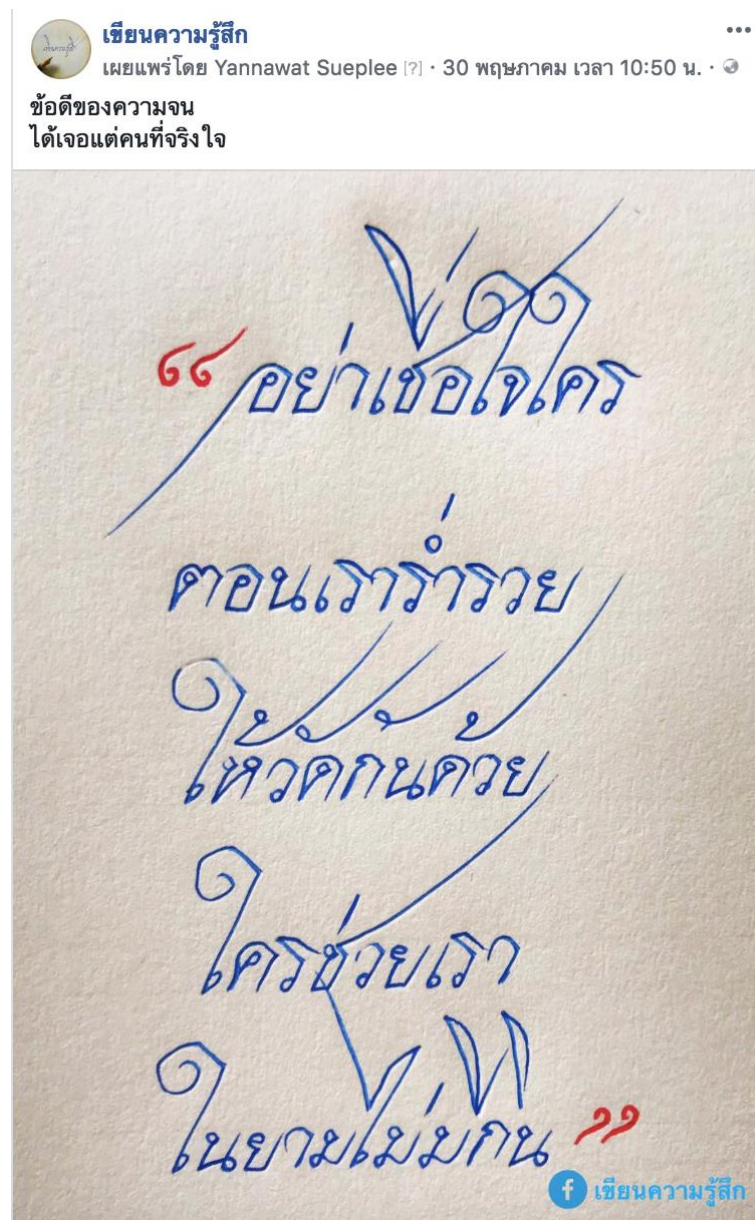 เขียนความรู้สึก
เผยแพร่โดย Yannawat Sueplee [?] · 30 พฤษภาคม เวลา 10:50 น. ·
ข้อดีของความจน
ได้เจอแต่คนที่จริงใจ
“อย่าเชื่อใจใคร
ตอนเราร่ำรวย
ให้วัดกันด้วย
ใครช่วยเรา
ในยามไม่มีกิน”
เขียนความรู้สึก